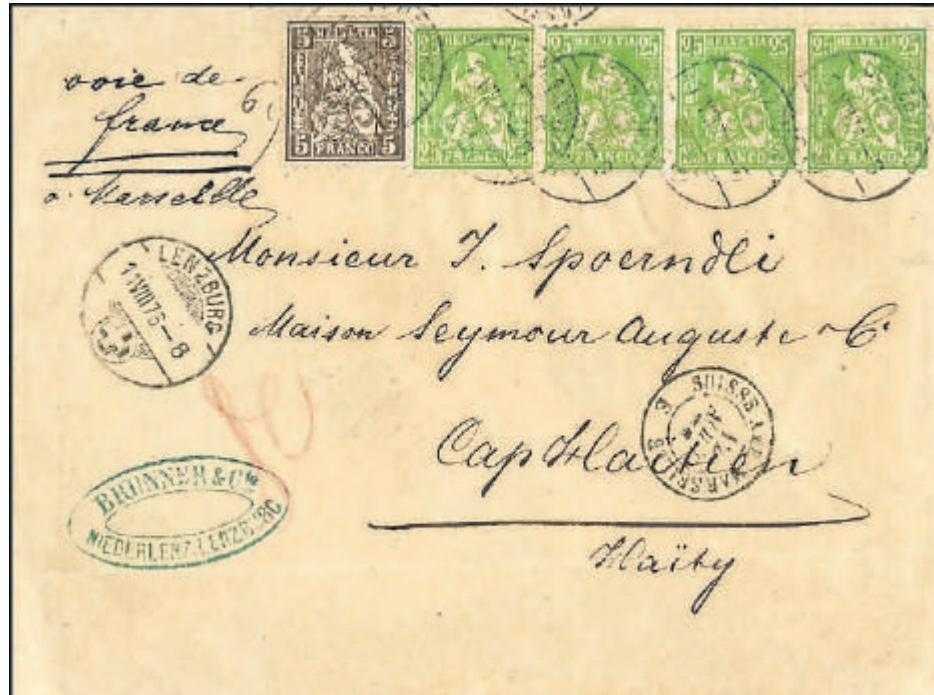 voie de
france
a Marseille
5 HELVETIA 5
5 FRANCO 5
25 HELVETIA 25
25 FRANCO 25
25 HELVETIA 25
25 FRANCO 25
25 HELVETIA 25
25 FRANCO 25
25 HELVETIA 25
25 FRANCO 25
Monsieur J. Spoerndli
LENZBURG
11 VIII 76-8
Maison Seymour Auguste & Cº
SUISSE
MARSEILLE
Cap Haïtien
BRUNNER & Cie
NIEDERLENZ, LENZBURG
Haïty